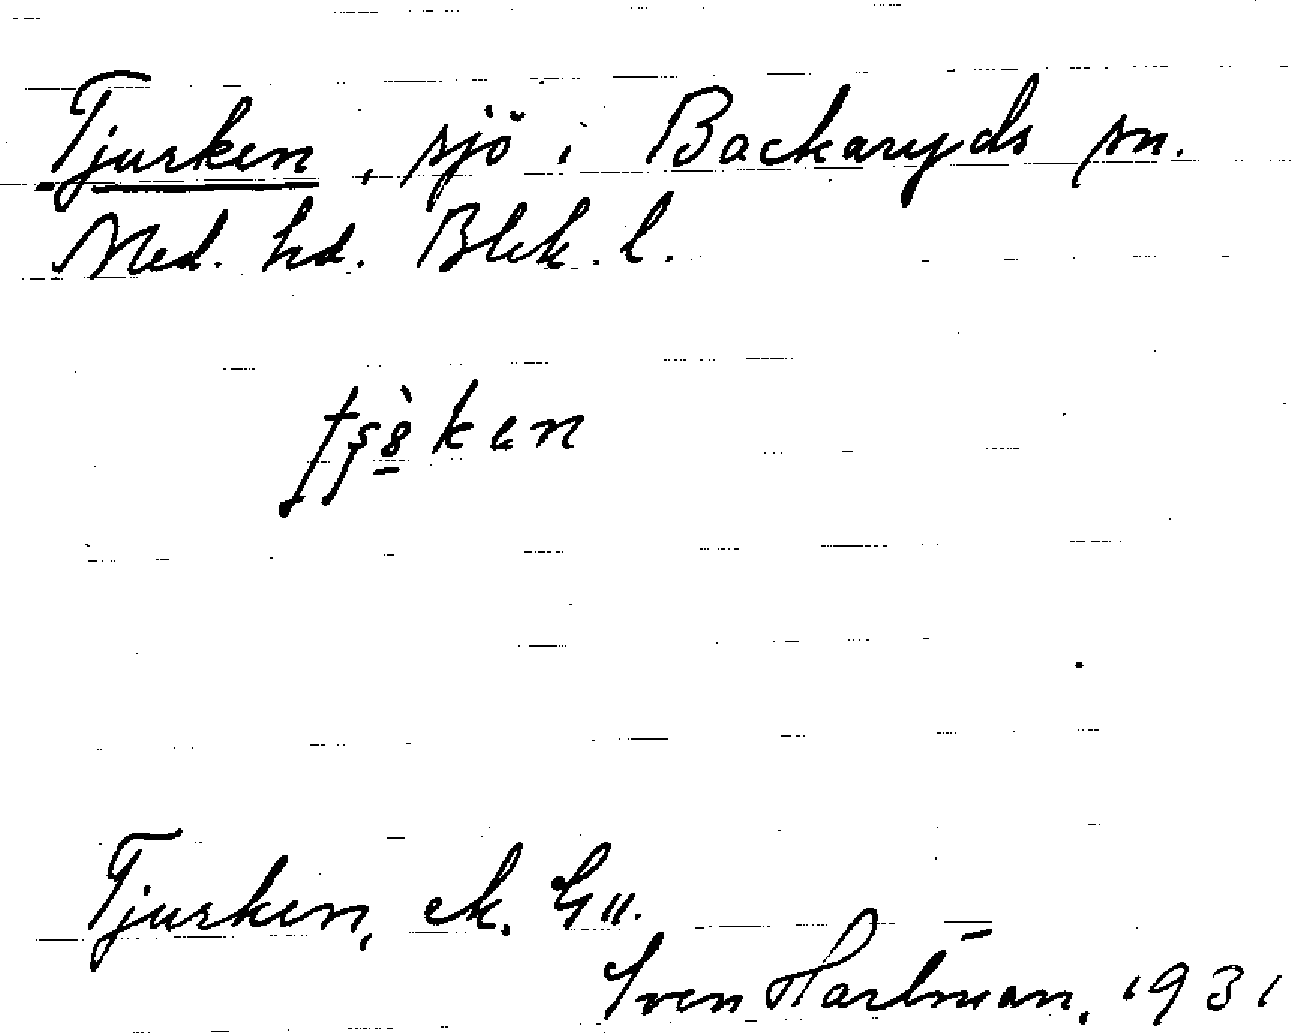 Tjurken, sjö i Backaryds sn.
Med. hd. Blek. l.
Tjurken, ek. G 11.
Sven Harlman, 1931